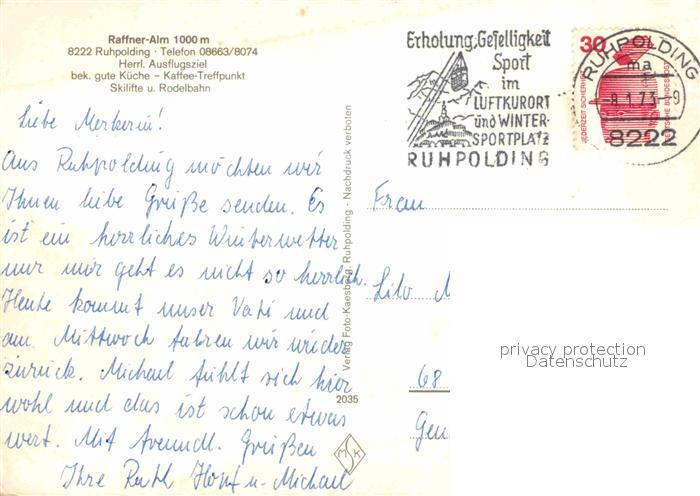 Raffner-Alm 1000 m
8222 Ruhpolding · Telefon 08663/8074
Herrl. Ausflugsziel
bek. gute Küche – Kaffee-Treffpunkt
Skilifte u. Rodelbahn
Liebe
Aus Ruhpolding möchten wir
Ihnen liebe Grüße senden. Es
ist ein herrliches Winterwetter
nur mir geht es nicht so herrlich.
Heute kommt unser Vati und
am Mittwoch fahren wir wieder
zurück. Michael fühlt sich hier
wohl und das ist schon etwas
wert. Mit freundl. Grüßen
Ihre Ruth u. Michael
Verlag Foto-Kaesberg, Ruhpolding - Nachdruck verboten
2035
M S K
Erholung, Geselligkeit
Sport
im
LUFTKURORT
und WINTER-
SPORTPLATZ
RUHPOLDING
30
JEDERZEIT SICHERHEIT
DEUTSCHE BUNDESPOST
RUHPOLDING
ma
-8.1.73-9
8222
Frau
Lilo M
68
privacy protection
Datenschutz